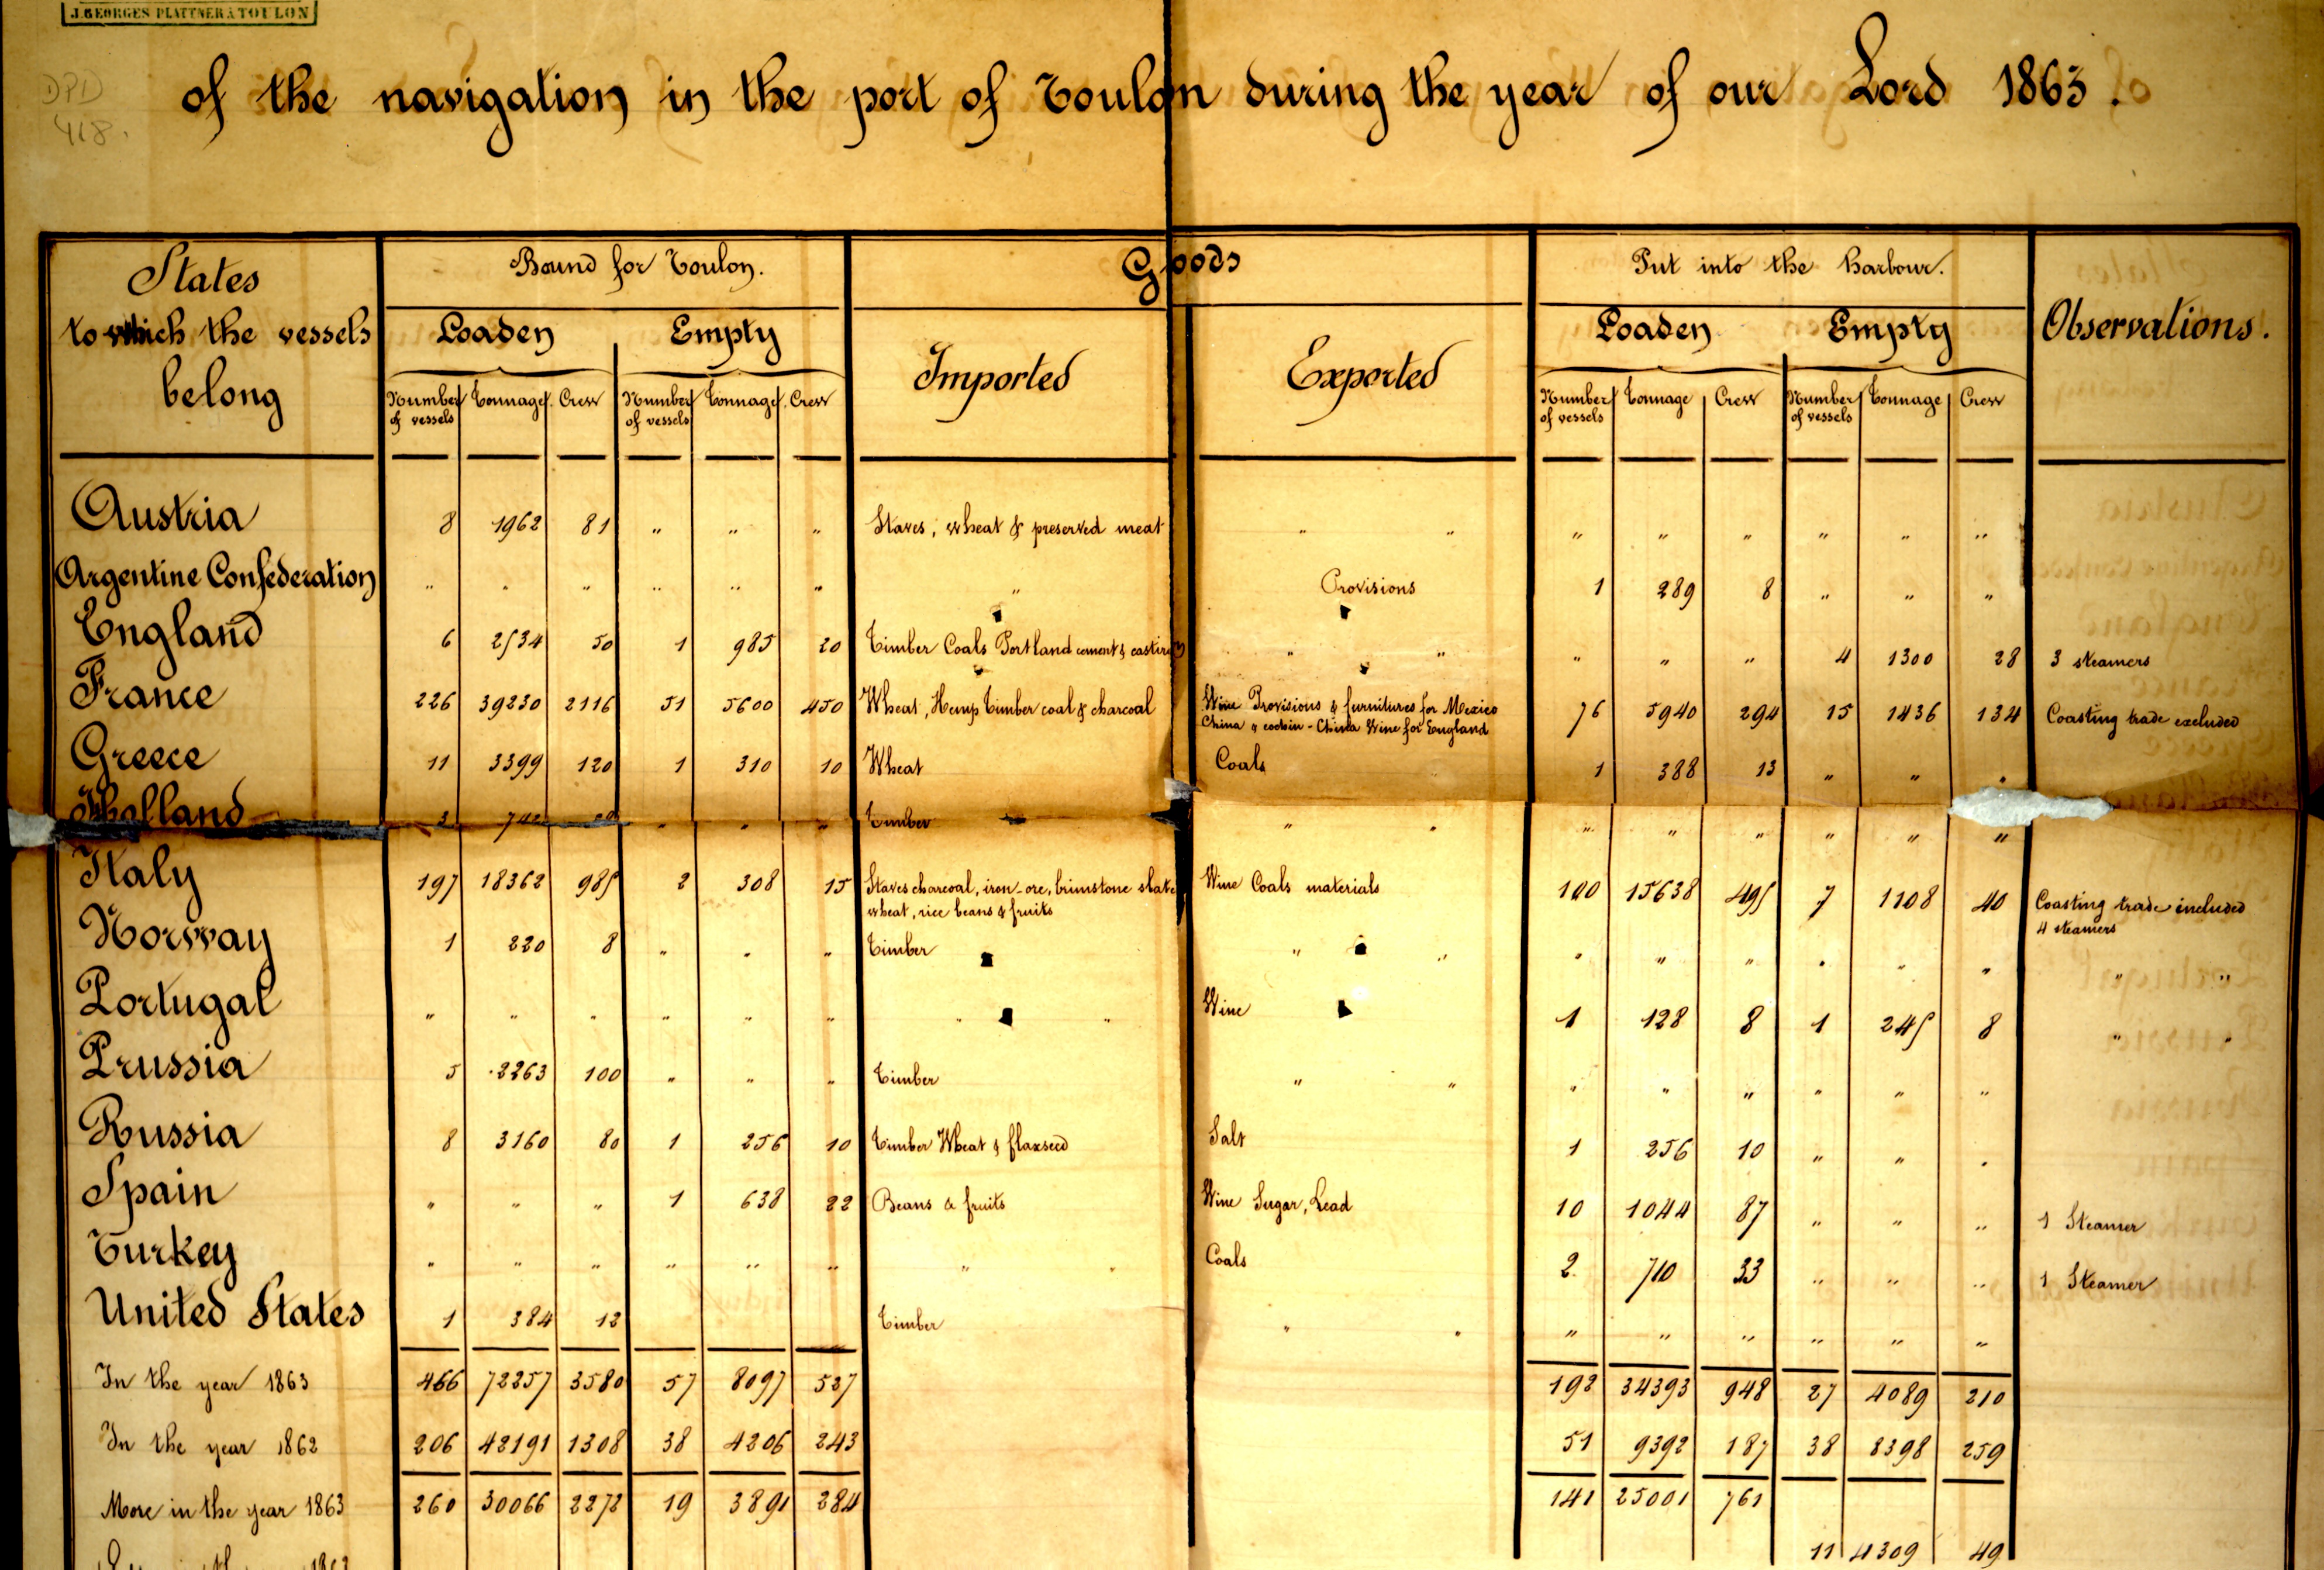 J. GEORGES PLATTNER À TOULON
DPD
418.
of the navigation in the port of Toulon during the year of our Lord 1863.
States to which the vessels belong
Bound for Toulon.
Goods
Put into the harbour.
Observations.
Loaden Empty Imported Exported Loaden Empty
Number of vessels Tonnage Crew Number of vessels Tonnage Crew Number of vessels Tonnage Crew Number of vessels Tonnage Crew
Austria 8 1962 81 " " " Staves, wheat & preserved meat " " " " " " " "
Argentine Confederation " " " " " " " Provisions 1 289 8 " " "
England 6 2534 50 1 985 20 Timber Coals Portland cement & " " " " " 4 1300 28 3 steamers
France 226 39230 2116 51 5600 450 Wheat, Hemp Timber coal & charcoal Wine Provisions & furnitures for Mexico 76 5940 294 15 1436 134 Coasting trade excluded
China & cochin-China Wine for England
Greece 11 3399 120 1 310 10 Wheat Coals 1 388 13 " " "
Holland 3 742 " " " Timber " " " " " " " "
Italy 197 18362 985 2 308 15 Staves charcoal, iron-ore, brimstone slate Wine Coals materials 100 15638 495 7 1108 40 Coasting trade included
wheat, rice beans & fruits 4 steamers
Norway 1 220 8 " " " Timber " " " " " " " " " "
Portugal " " " " " " " " Wine 1 128 8 1 245 8 " "
Prussia 5 2263 100 " " " Timber " " " " " " " "
Russia 8 3160 80 1 256 10 Timber Wheat & flaxseed Salt 1 256 10 " " "
Spain " " " 1 638 22 Beans & fruits Wine Sugar, Lead 10 1044 87 " " " 1 Steamer
Turkey " " " " " " " " Coals 2 710 33 " " " 1 Steamer
United States 1 384 12 Timber " " " " " " " "
In the year 1863 466 72257 3580 57 8097 527 192 34393 948 27 4089 210
In the year 1862 206 42191 1308 38 4206 243 51 9392 187 38 8398 259
More in the year 1863 260 30066 2272 19 3891 284 141 25001 761
11 4309 49